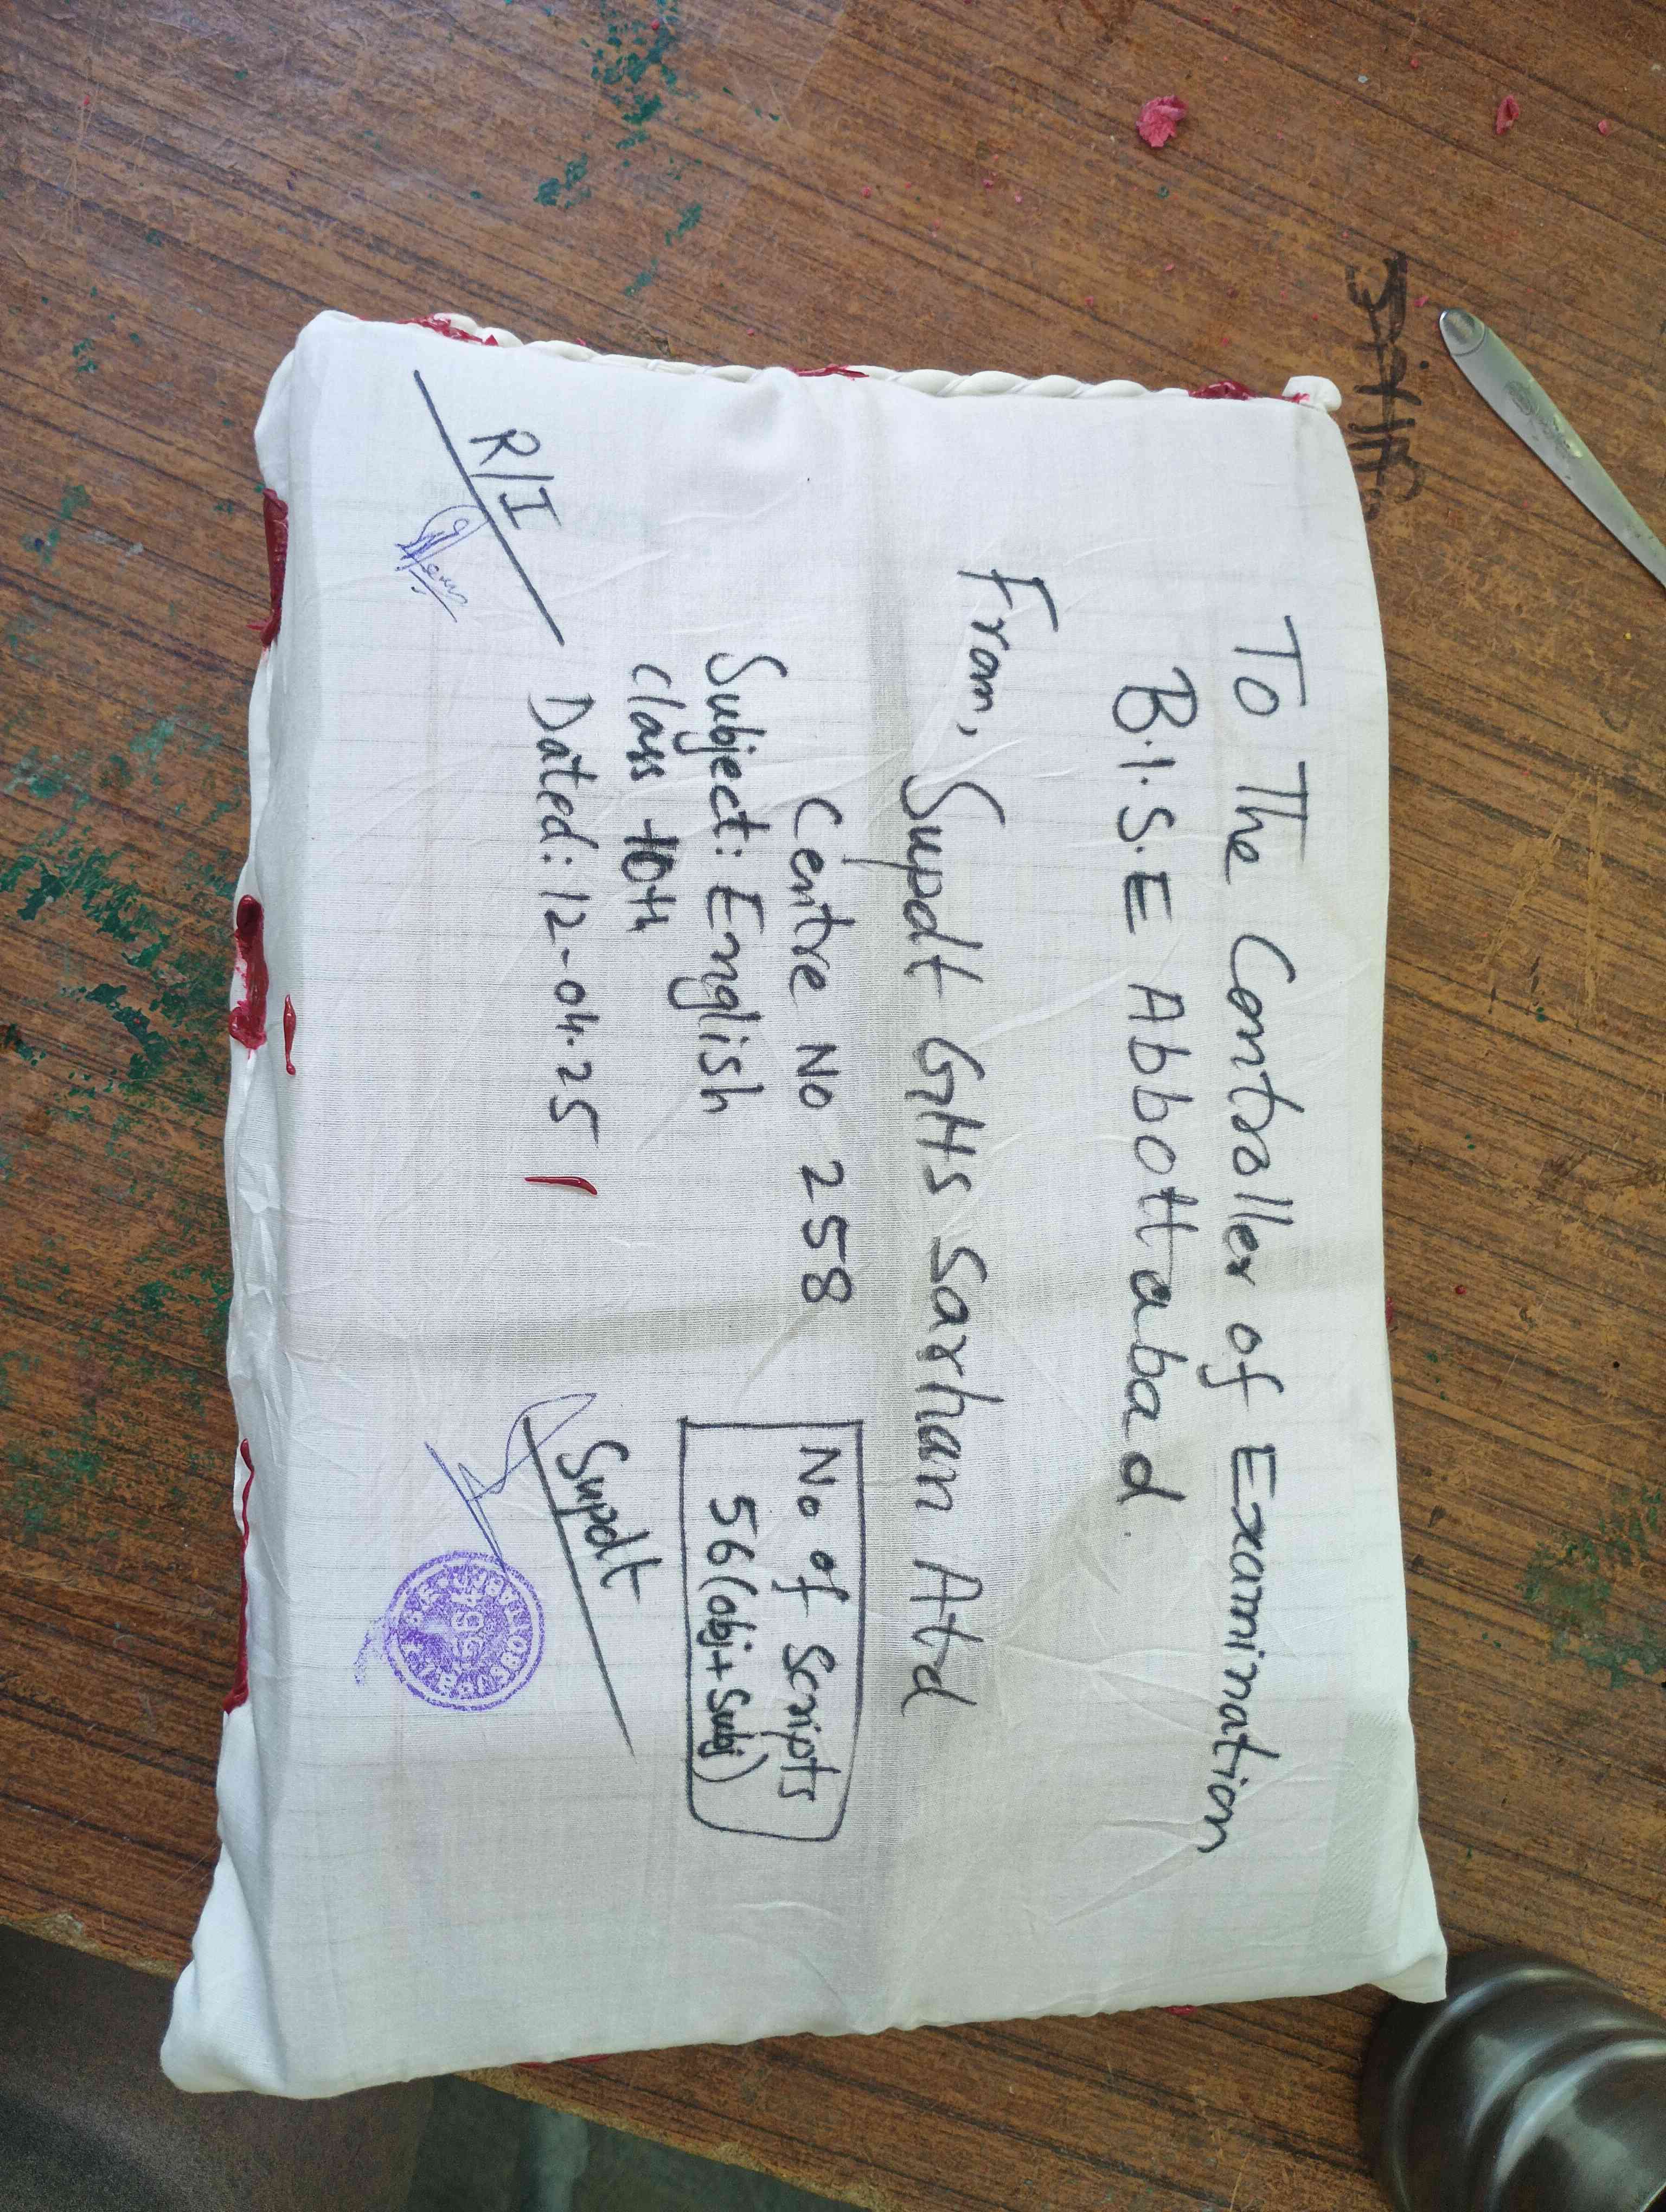 To The Controller of Examination
B.I.S.E Abbottabad.
From, Supdt GHS Sarhan Atd
Centre No 258
Subject: English
Class 10th
Dated: 12-04-25
No of Scripts
56 (obj + Subj)
R/I
Supdt